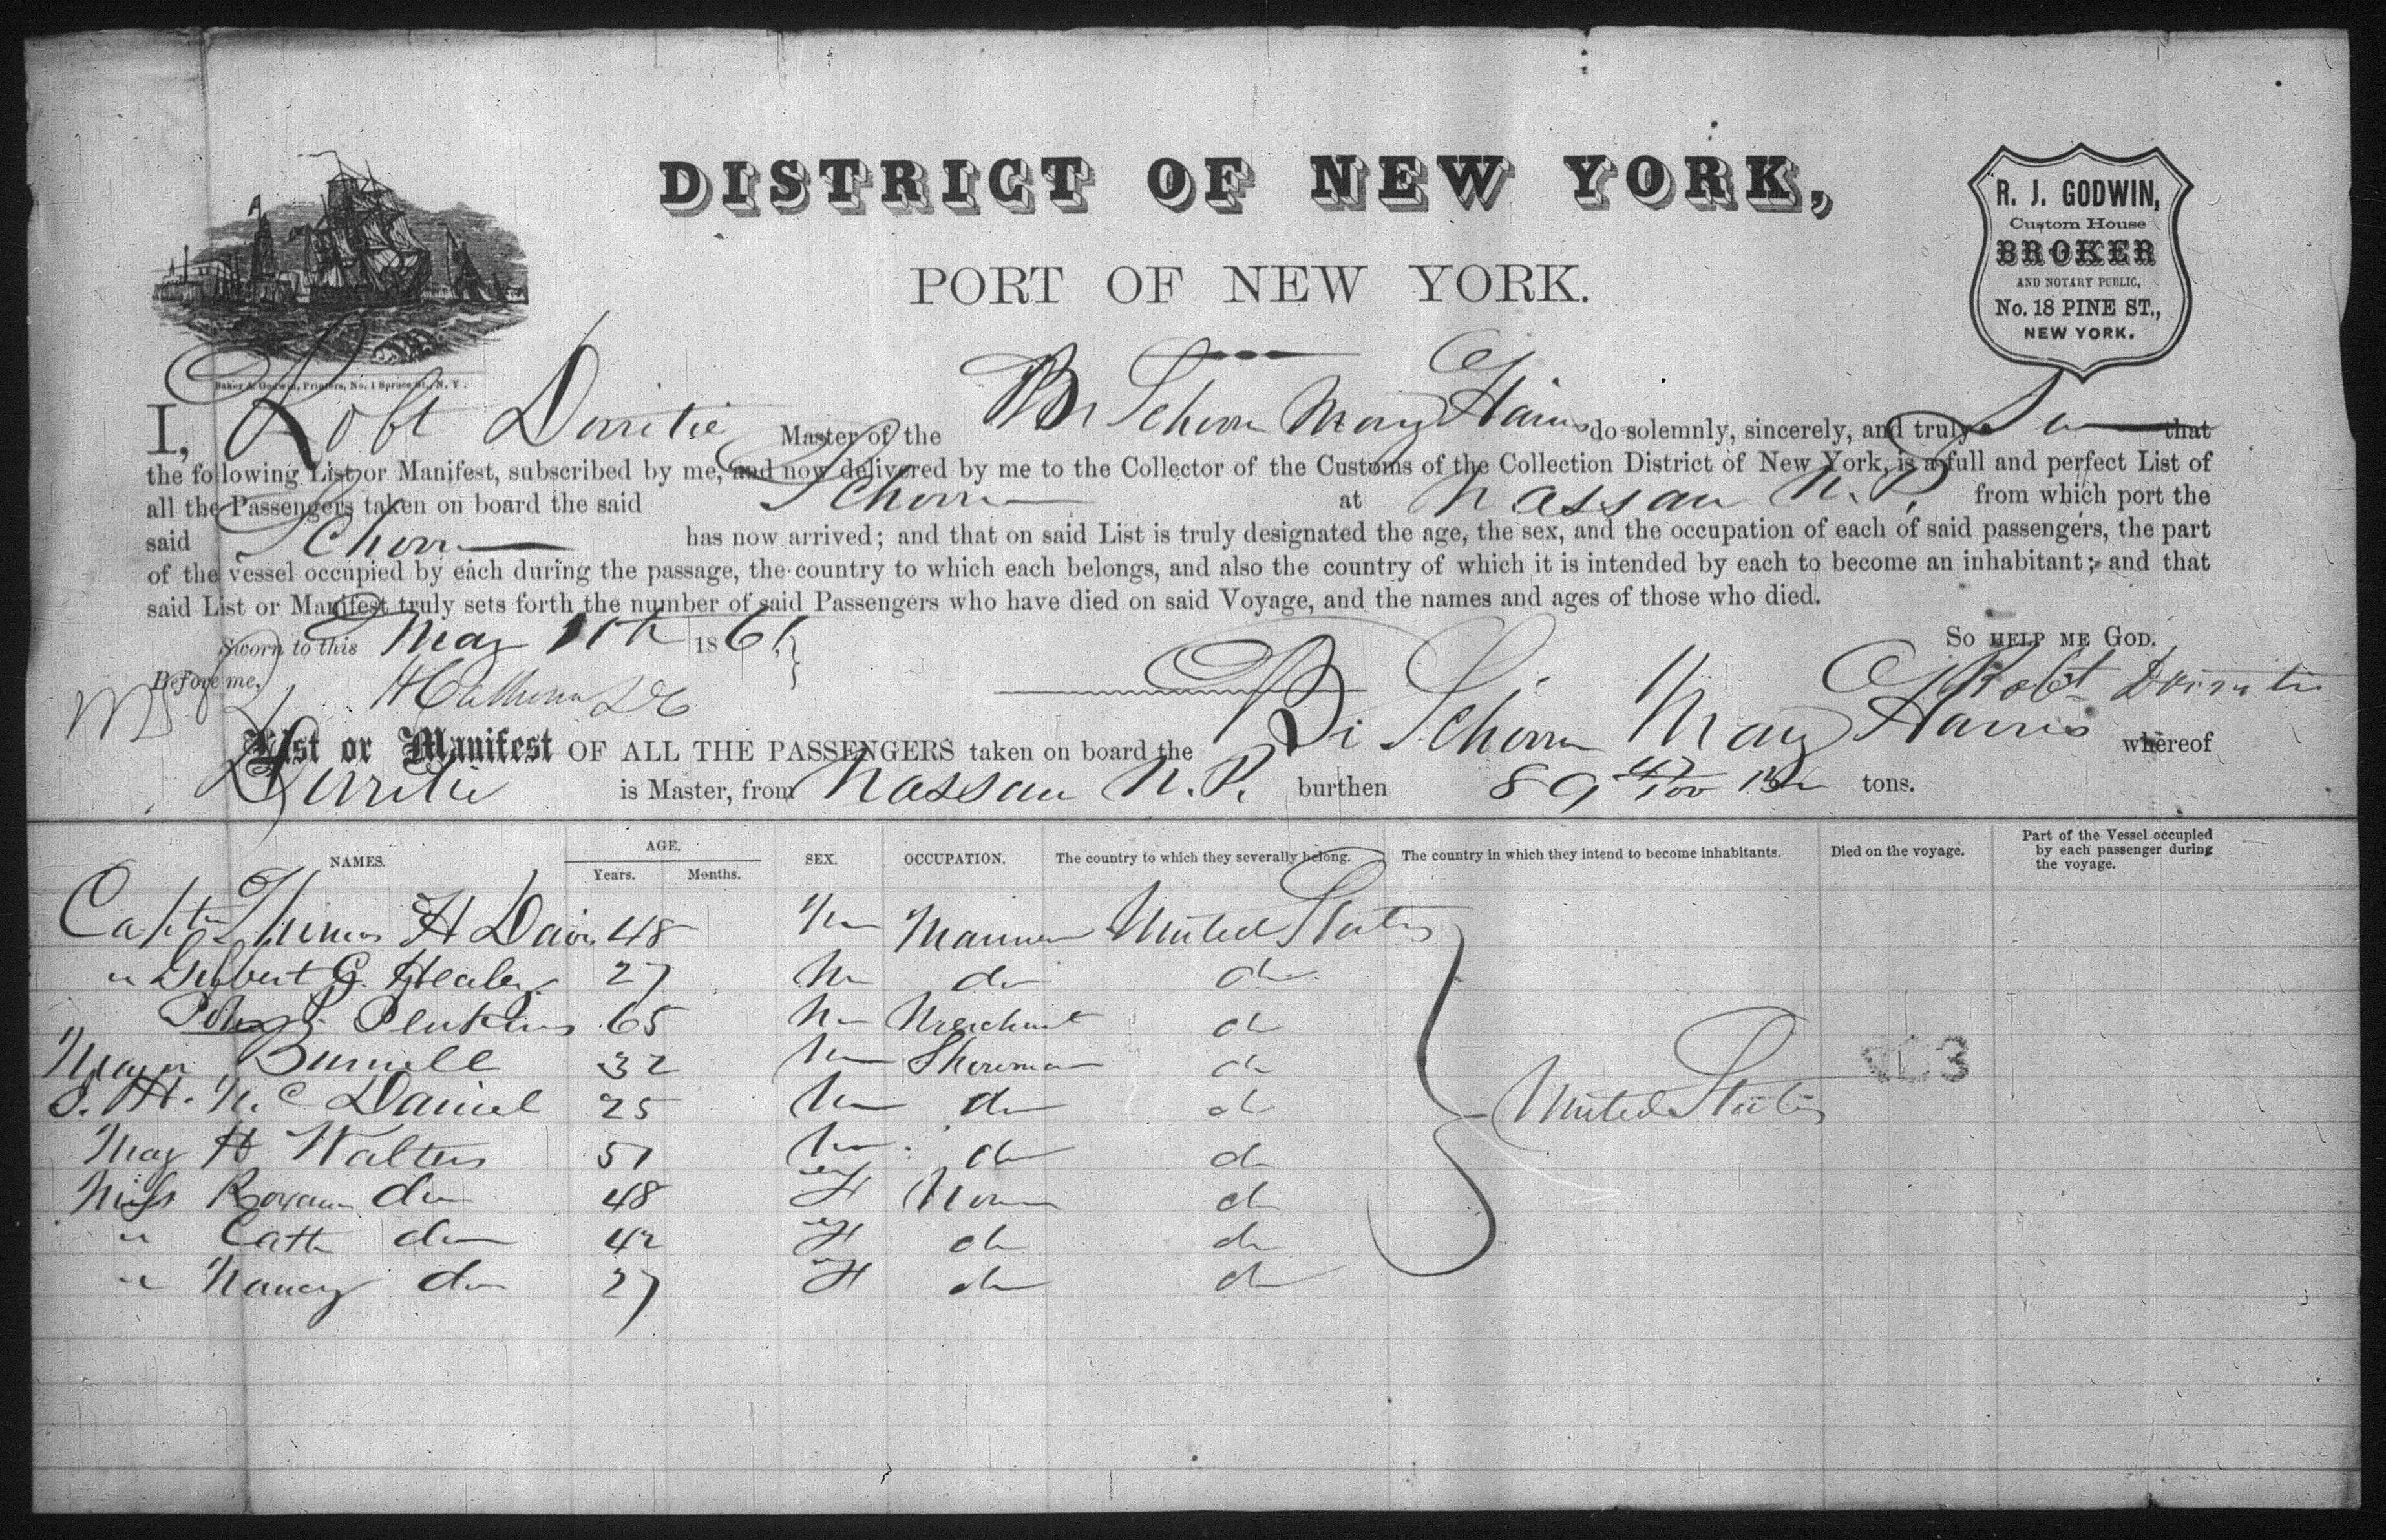 DISTRICT OF NEW YORK,
PORT OF NEW YORK.
R. J. GODWIN,
Custom House
BROKER
AND NOTARY PUBLIC,
No. 18 PINE ST.,
NEW YORK.
Baker & Godwin, Printers, No. 1 Spruce St., N. Y.
I, Robt Master of the Br Schorr Mary Harris do solemnly, sincerely, and truly that
the following List or Manifest, subscribed by me, and now delivered by me to the Collector of the Customs of the Collection District of New York, is a full and perfect List of
all the Passengers taken on board the said Schorr at Nassau N. P. from which port the
said Schorr has now arrived; and that on said List is truly designated the age, the sex, and the occupation of each of said passengers, the part
of the vessel occupied by each during the passage, the country to which each belongs, and also the country of which it is intended by each to become an inhabitant; and that
said List or Manifest truly sets forth the number of said Passengers who have died on said Voyage, and the names and ages of those who died.
Sworn to this May 11th 1861, So HELP ME GOD.
Before me, Robt
List or Manifest OF ALL THE PASSENGERS taken on board the Schorr Mary Harris whereof
is Master, from Nassau N. P. burthen 89 tons.
NAMES. AGE. Years. Months. SEX. OCCUPATION. The country to which they severally belong. The country in which they intend to become inhabitants. Died on the voyage. Part of the Vessel occupied by each passenger during the voyage.
Capt Thomas H Davis 48 M Mariner United States
" G. Healey 27 M do do
Perkins 65 M Merchant do
Burnell 32 M Showman do
S. H. McDaniel 25 M do do United States
May H Walters 51 M do do
Miss Roxana do 48 F None do
" Cath do 42 F do do
" Nancy do 27 F do do